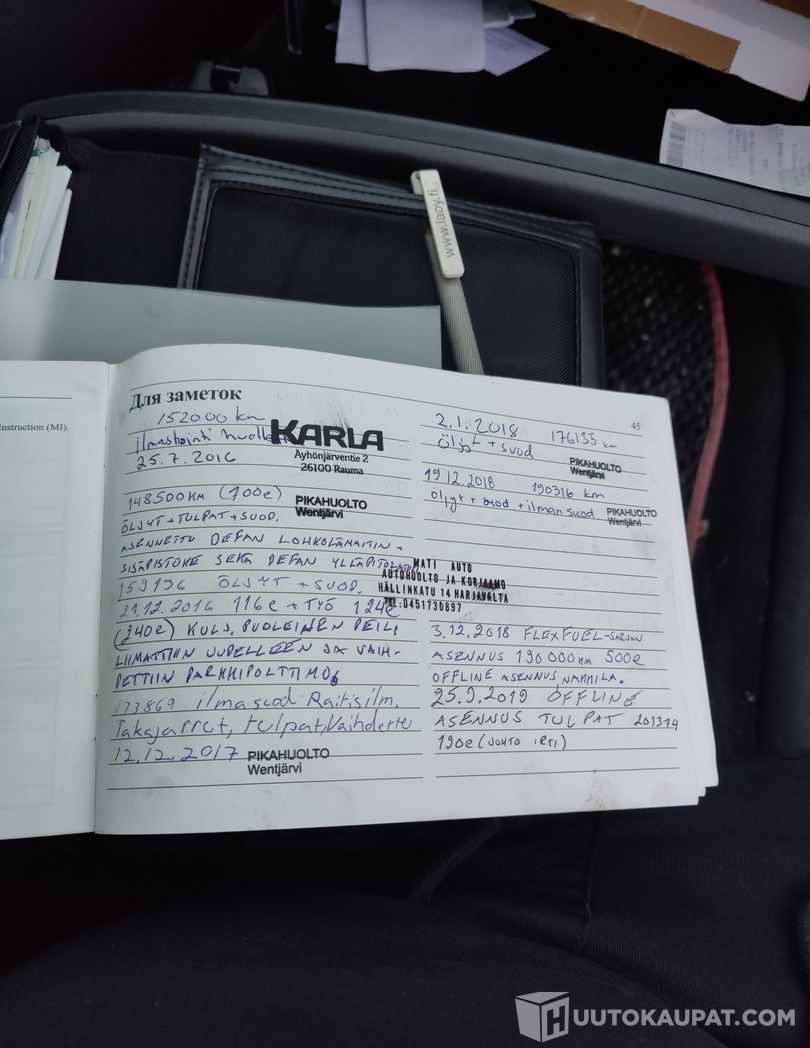 www.laoy.fi
Instruction (MI).
Для заметок
45
152000 km
ilmastointi huollettu
25.7.2016
KARLA
Äyhönjärventie 2
26100 Rauma
148500KM (700e)
PIKAHUOLTO
Wentjärvi
ÖLJYT+TULPAT+SUOD.
ASENNETTU DEFAN LOHKOLÄMMITIN +
SISÄPISTOKE SEKÄ DEFAN YLLÄPITOLATURI
159136 ÖLJYT + SUOD.
21.12.2016 116e + TYÖ 124e
(240e) KULJ. PUOLEINEN PEILI
LIIMATTIIN UUDELLEEN JA VAIH-
DETTIIN PARKKIPOLTTIMO
173869 ilmasuod Raitisilm.
Takajarrut, tulpat, Vaihdettu
12.12.2017
PIKAHUOLTO
Wentjärvi
2.1.2018 176135 km
Öljyt + suod
PIKAHUOLTO
Wentjärvi
19.12.2018 190316 km
Öljyt + suod + ilmansuod
PIKAHUOLTO
Wentjärvi
MATI AUTO
AUTOHUOLTO JA KORJAAMO
HÄLLINKATU 14 HARJAVALTA
TEL:0451730897
3.12.2018 FLEXFUEL-SARJAN
ASENNUS 190000km 500e
OFFLINE ASENNUS, NAKKILA.
25.9.2019 OFFLINE
ASENNUS TULPAT 201314
190e (JOHTO IRTI)
HUUTOKAUPAT.COM